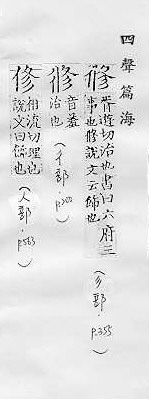 四聲篇海
修 胥遊切治也書曰六府三
事也修說文云飾也
(彡部.p.355)
㣜 音叢
治也
(彳部.p.300)
修 相流切理也
說文曰飾也
(人部.p.563)